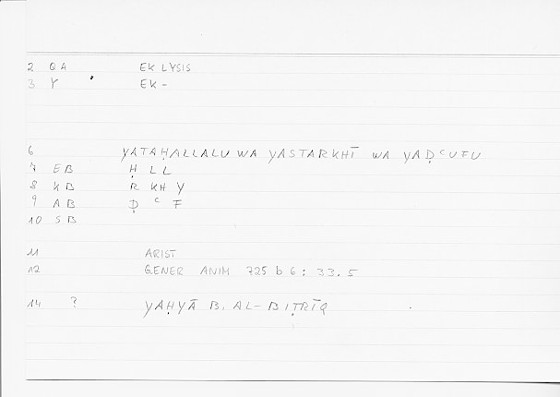 2 QA EKLYSIS
3 Y EK-
6 YATAḤALLALU WA YASTARKHĪ WA YAḌᶜUFU
7 EB ḤLL
8 KB RKHY
9 AB ḌᶜF
10 SB
11 ARIST
12 GENER ANIM 725 b 6 : 33.5
14 ? YAḤYĀ B. AL-BIṬRĪQ